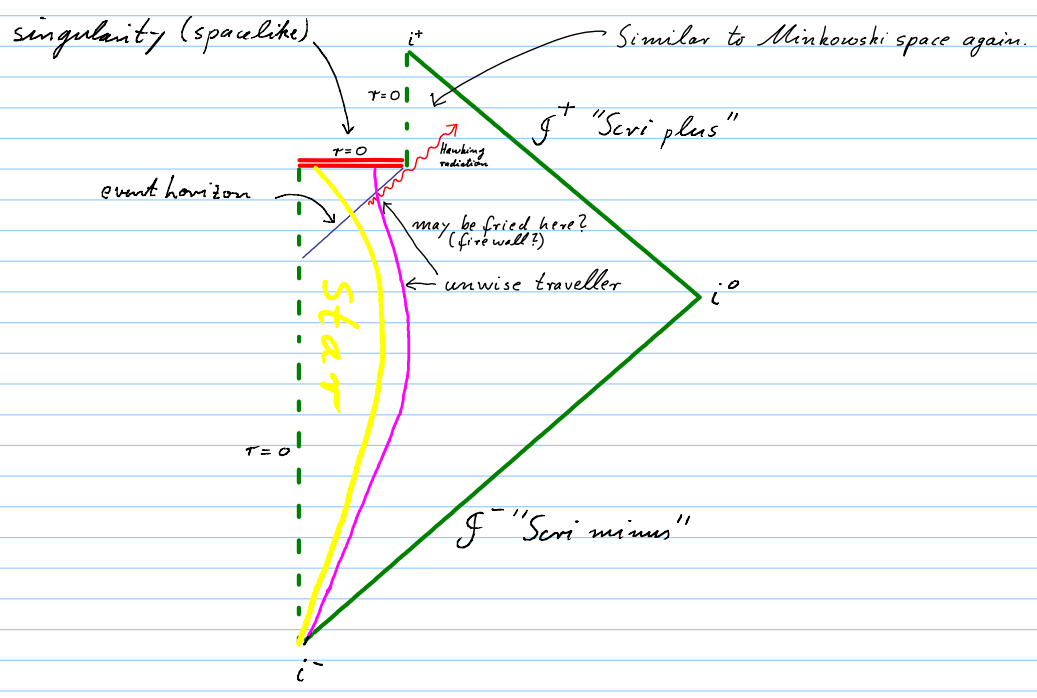 singularity (spacelike)
i⁺
Similar to Minkowski space again.
r=0
𝓘⁺ "Scri plus"
r=0
Hawking
radiation
event horizon
may be fried here?
(firewall?)
unwise traveller
i⁰
Star
r=0
𝓘⁻ "Scri minus"
i⁻